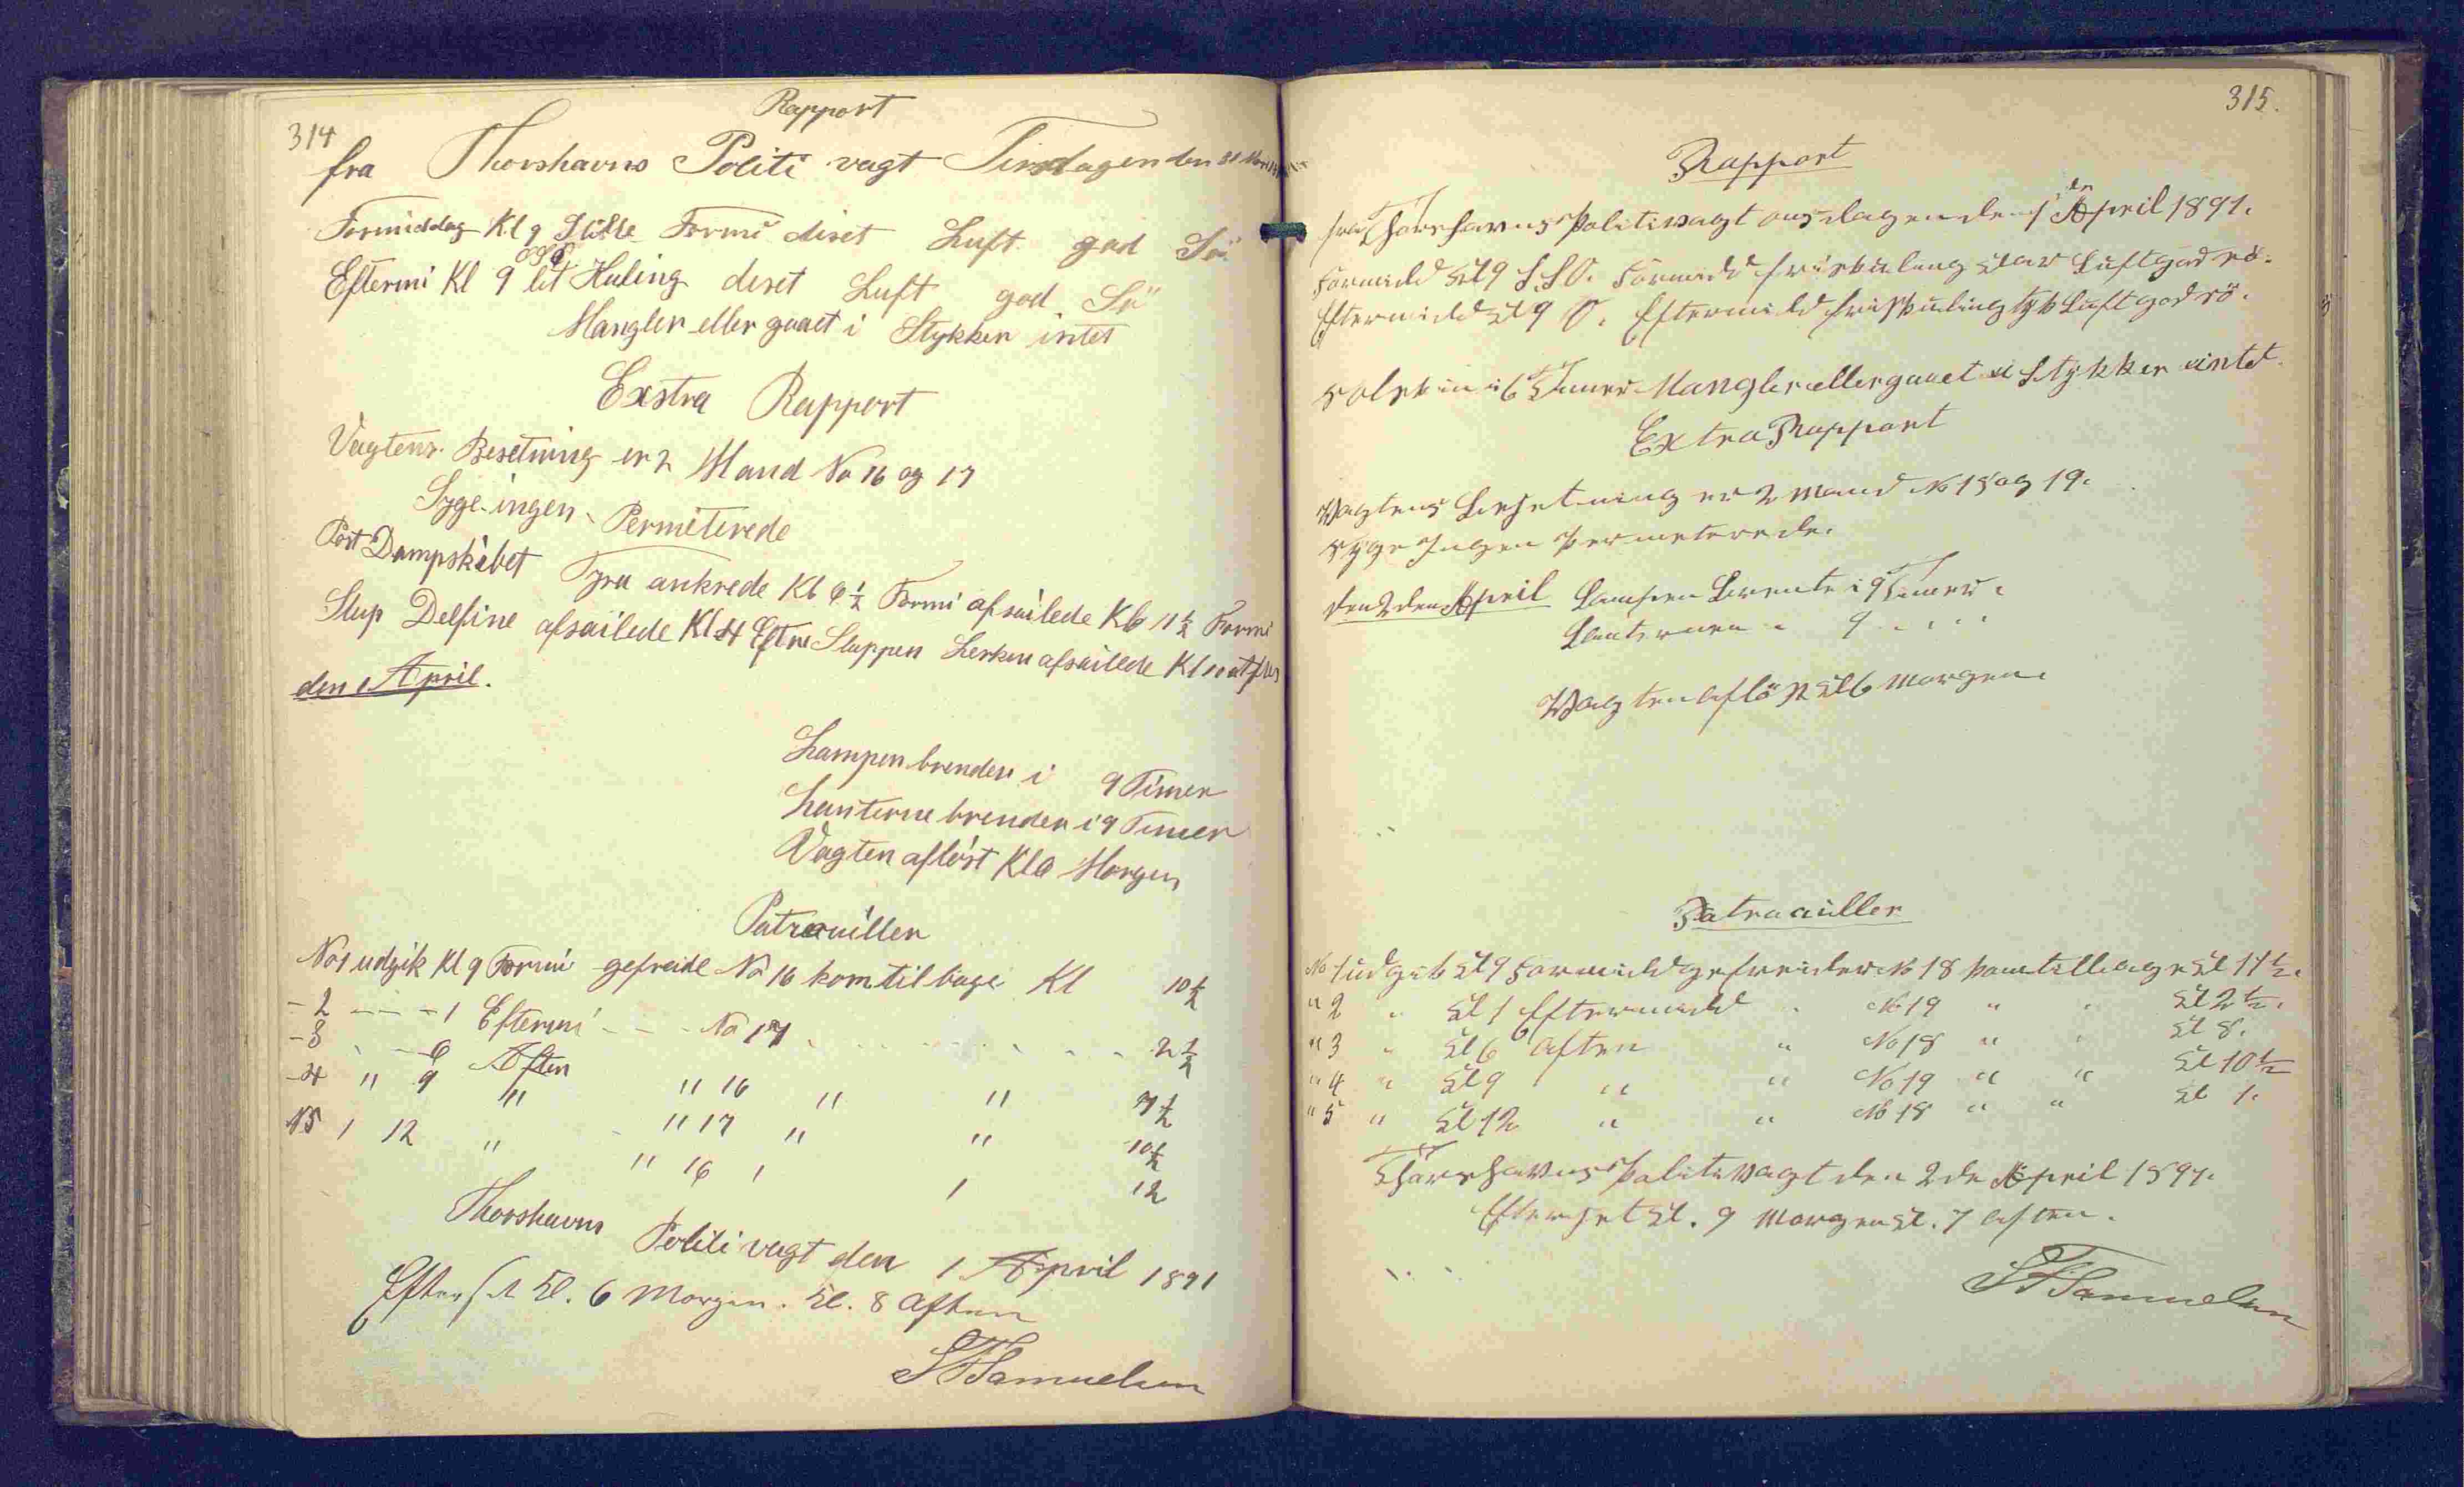 314
Rapport
fra Thorshavns Politi vagt Tirsdagen den 31
Formiddag Kl 9 Stille Formi diset Luft god Sö
OSO
Eftermi Kl 9 let Kuling diset Luft god Sö
Mangler eller gaaet i Stykker intet
Exstra Rapport
Vagtens Besetning er 2 Mand No 16 og 17
Syge ingen Permiterede
Post Dampskibet Tyra ankrede Kl 6 1/2 Formi afsailede Kl 11 1/2 Formi
Slup Delfine afsailede Kl 4 Efter Sluppen Lerken afsailede Kl 10
den 1 April.
Lampen brenden i 9 Timer
Lanterne brender i 9 Timer
Vagten aflöst Kl 6 Morgen
Patrouiller
No 1 udgik Kl 9 Formi gefreide No 16 kom tilbage Kl 10 1/2
- 2 - - - 1 Eftermi - - - No 17 2 1/2
- 3 - - 6 Aften " 16 " " 7 1/2
- 4 " 9 " " 17 " " 10 1/2
N5 1 12 " " 16 1 1 12
Thorshavns Politi vagt den 1 April 1891
Efterset Kl. 6 Morgen. Kl. 8 Aften
Samuelsen
315.
Rapport
fra Thorshavns Politivagt onsdagen den 1 April 1891.
Formidd Kl 9 S.S.O. Formidd frisk kuling klar Luft god sö.
Eftermidd Kl 9 O. Eftermidd frisk kuling tyk Luft god sö.
Solskin i 6 Timer Mangler eller gaaet i Stykker intet.
Extra Rapport
Vagtens Besetning er 2 Mand No 18 og 19.
Syge Ingen Permeterede.
den 2den April Lampen Brente i 9 Timer.
Lanternen " 9 " " "
Vagten aflöst Kl 6 Morgen.
Patrouiller
No 1 udgik Kl 9 Formidd gefreider No 18 kom tilbage Kl 11 1/2.
" 2 " Kl 1 Eftermidd " No 19 " " Kl 2 1/2.
" 3 " Kl 6 Aften " No 18 " " Kl 8.
" 4 " Kl 9 " " No 19 " " Kl 10 1/2
" 5 " Kl 12 " " No 18 " " Kl 1.
Thorshavns Politivagt den 2de April 1891.
Efterset Kl. 9 Morgen Kl. 7 Aften.
Samuelsen